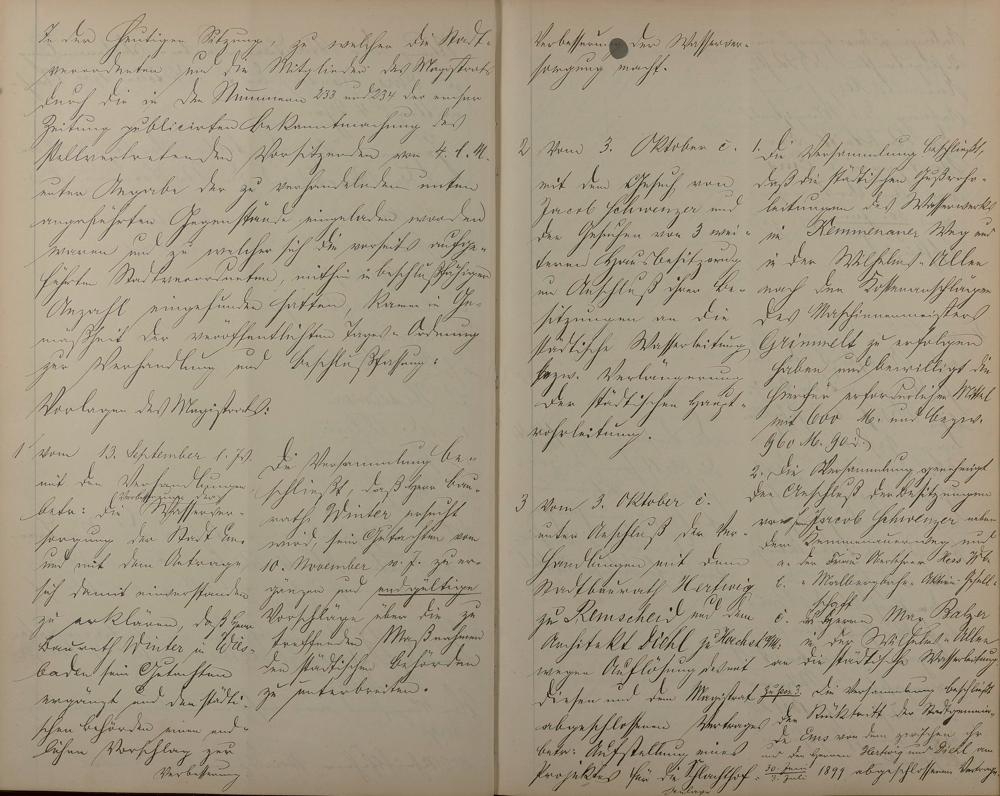 In der heutigen Sitzung, zu welcher die Stadt-
verordneten und die Mitglieder des Magistrats
durch die in den Nummern 233 und 234 der emser
Zeitung publicirten Bekanntmachung des
stellvertretenden Vorsitzenden vom 4. l. M.
unter Angabe der zu verhandelnden unten
angeführten Gegenstände eingeladen worden
waren und zu welcher sich die vorseits aufge-
führten Stadtverordneten, mithin in beschlußfähiger
Anzahl eingefunden hatten, kam in Ge-
mäßheit der veröffentlichten Tages-Ordnung
zur Verhandlung und Beschlußfaßung:
Vorlagen des Magistrats:
1 vom 13. September l. Js.
mit den Verhandlungen
betr: die Verbesserung der Wasserver-
sorgung der Stadt Ems
und mit dem Antrage
sich damit einverstanden
zu erklären, daß Herr
Baurath Winter in Wies-
baden sein Gutachten
ergänzt und den städti-
schen Behörden einen end-
lichen Vorschlag zur
Verbesserung
Die Versammlung be-
schließt, daß Herr Bau-
rath Winter ersucht
wird, sein Gutachten vom
10. November v. J. zu er-
gänzen und endgültige
Vorschläge über die zu
treffenden Maßnahmen
den städtischen Behörden
zu unterbreiten.
Verbesserung der Wasserver-
sorgung macht.
2 Vom 3. Oktober c.
mit dem Gesuch von
Jacob Schwenzer und
den Gesuchen von 3 wei-
teren Hausbesitzern
um Anschluß ihrer Be-
sitzungen an die
städtische Wasserleitung
bezw. Verlängerung
der städtischen Haupt-
rohrleitung.
1. Die Versammlung beschließt,
daß die städtischen Gußrohr-
leitungen des Wasserwerks
im Kemmenauer Weg und
in der Wilhelms-Allee
nach den Kostenanschlägen
des Maschinenmeisters
Grimmelt zu erfolgen
haben und bewilligt die
hierfür erforderlichen Mittel
mit 600 M. und bezw.
960 M. 90 d.
2. Die Versammlung genehmigt
den Anschluß der Besitzungen
von Jacob Schwenzer neben
dem Kemmenauerweg und
a. der Frau Hess Wb.
b. " Malbergbahn-Aktien-Gesell-
schaft
c. des Herrn Max Balzer
in der Wilhelms-Allee
an die städtische Wasserleitung
3 Vom 3. Oktober c.
unter Anschluß der Ver-
handlungen mit dem
Stadtbaurath Hertwig
zu Remscheid und dem
Architekt Diehl zu
wegen Auflösung des mit
diesen und dem Magistrat
abgeschlossenen Vertrages
betr: Aufstellung eines
Projektes für die Schlachthof-
Anlage
zu pos. 3. Die Versammlung beschließt
den Rücktritt der Stadtgemein-
de Ems von dem zwischen ihr
und den Herren Hertwig und Diehl am
30. Juni / 3. Juli 1899 abgeschlossenen Vertrage